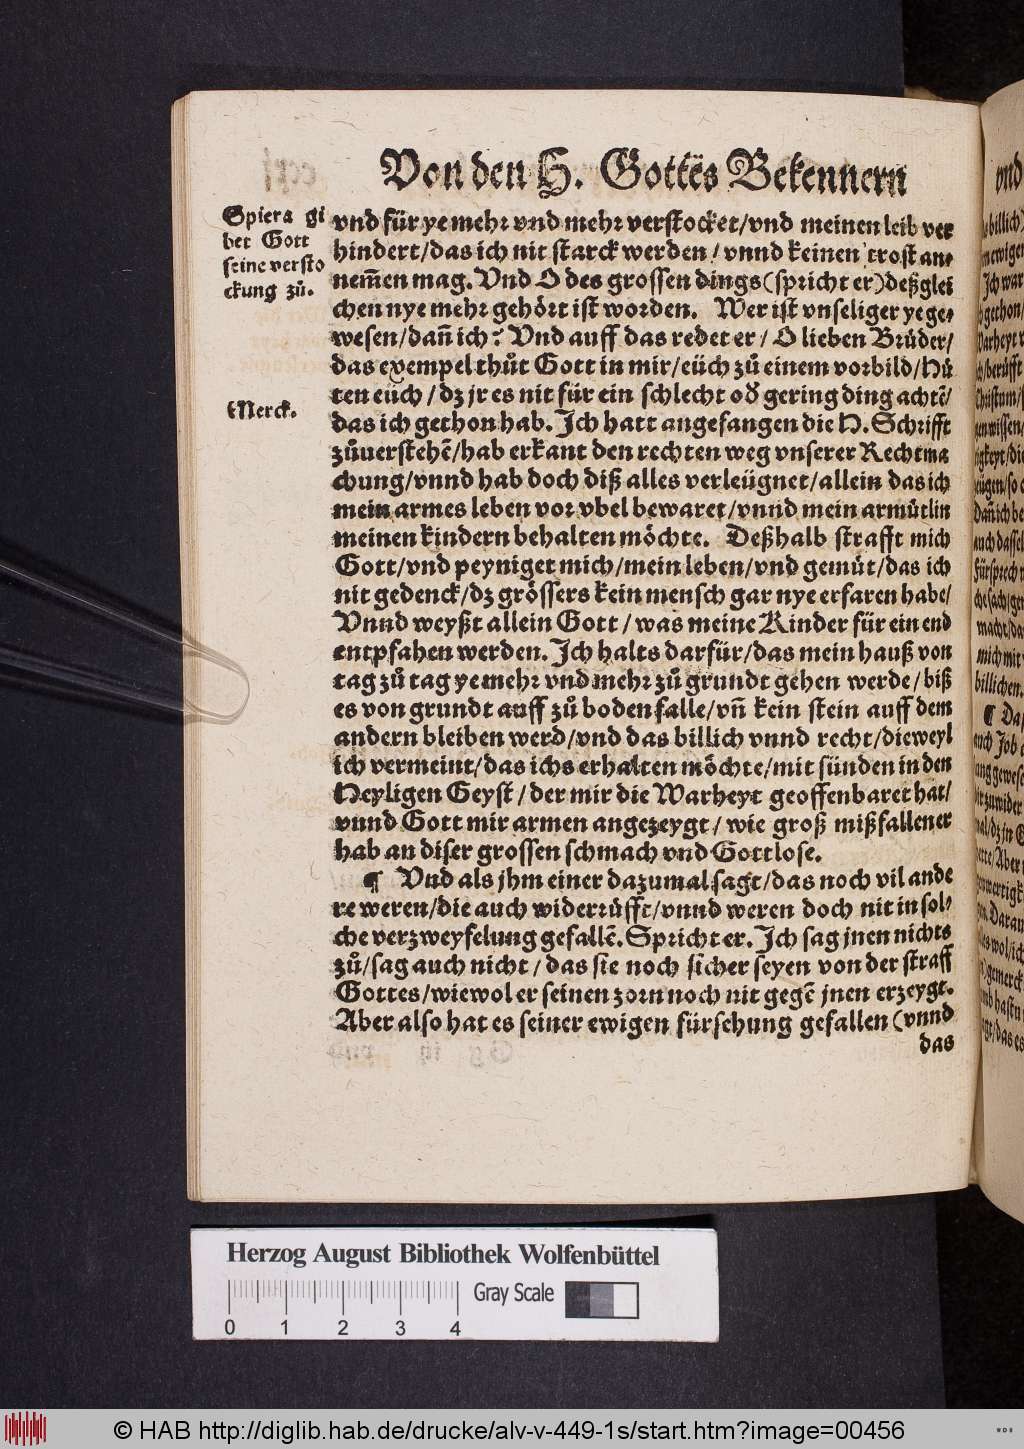 Von den H. Gottes Bekennern
Spiera gi
bet Gott
seine versto
ckung zů.
vnd für ye mehr vnd mehr verstocket/vnd meinen leib ver
hindert/das ich nit starck werden/vnnd keinen trost an⸗
nem̃en mag. Vnd O des grossen dings (spricht er) deßglei
chen nye mehr gehört ist worden. Wer ist vnseliger ye ge⸗
wesen/dañ ich? Vnd auff das redet er/ O lieben Brüder/
das exempel thůt Gott in mir/eüch zů einem vorbild/Hü
ten eüch/dz jr es nit für ein schlecht od̕ gering ding achtẽ/
Merck.
das ich gethon hab. Ich hatt angefangen die H. Schrifft
zůuerstehẽ/hab erkant den rechten weg vnserer Rechtma
chung/vnnd hab doch diß alles verleügnet/allein das ich
mein armes leben vor vbel bewaret/vnnd mein armůtlin
meinen kindern behalten möchte. Deßhalb strafft mich
Gott/vnd peyniget mich/mein leben/vnd gemüt/das ich
nit gedenck/dz grössers kein mensch gar nye erfaren habe/
Vnnd weyßt allein Gott/was meine Kinder für ein end
entpfahen werden. Ich halts darfür/das mein hauß von
tag zů tag ye mehr vnd mehr zů grundt gehen werde/biß
es von grundt auff zů boden falle/vñ kein stein auff dem
andern bleiben werd/vnd das billich vnnd recht/dieweyl
ich vermeint/das ichs erhalten möchte/mit sünden in den
Heyligen Geyst/der mir die Warheyt geoffenbaret hat/
vnnd Gott mir armen angezeygt/wie groß mißfallen er
hab an diser grossen schmach vnd Gottlose.
¶ Vnd als jhm einer dazumal sagt/das noch vil ande
re weren/die auch widerrüfft/vnnd weren doch nit in sol⸗
che verzweyfelung gefallẽ. Spricht er. Ich sag jnen nichts
zů/sag auch nicht/das sie noch sicher seyen von der straff
Gottes/wiewol er seinen zorn noch nit gegẽ jnen erzeygt.
Aber also hat es seiner ewigen fürsehung gefallen (vnnd
das
Herzog August Bibliothek Wolfenbüttel
Gray Scale
0 1 2 3 4
© HAB http://diglib.hab.de/drucke/alv-v-449-1s/start.htm?image=00456